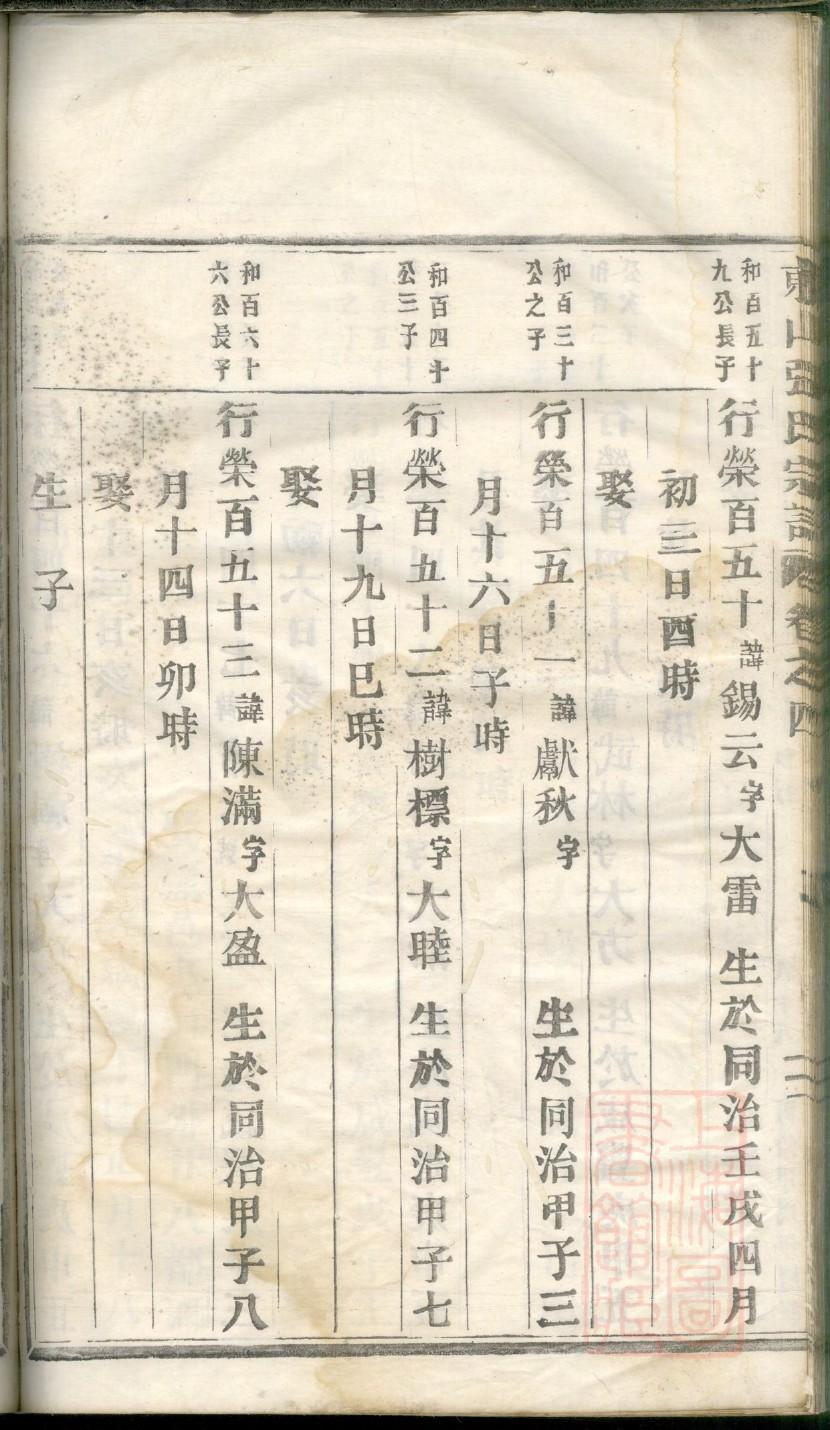 東山張氏宗譜 卷之四
和百五十
九公長子
行榮百五十諱錫云字大雷 生於同治壬戌四月
初三日酉時
娶
和百三十
公之子
行榮百五十一諱獻秋字 生於同治甲子三
月十六日子時
和百四十
公三子
行榮百五十二諱樹標字大睦 生於同治甲子七
月十九日巳時
娶
和百六十
六公長子
行榮百五十三諱陳滿字大盈 生於同治甲子八
月十四日卯時
娶
生子
上海圖書館藏